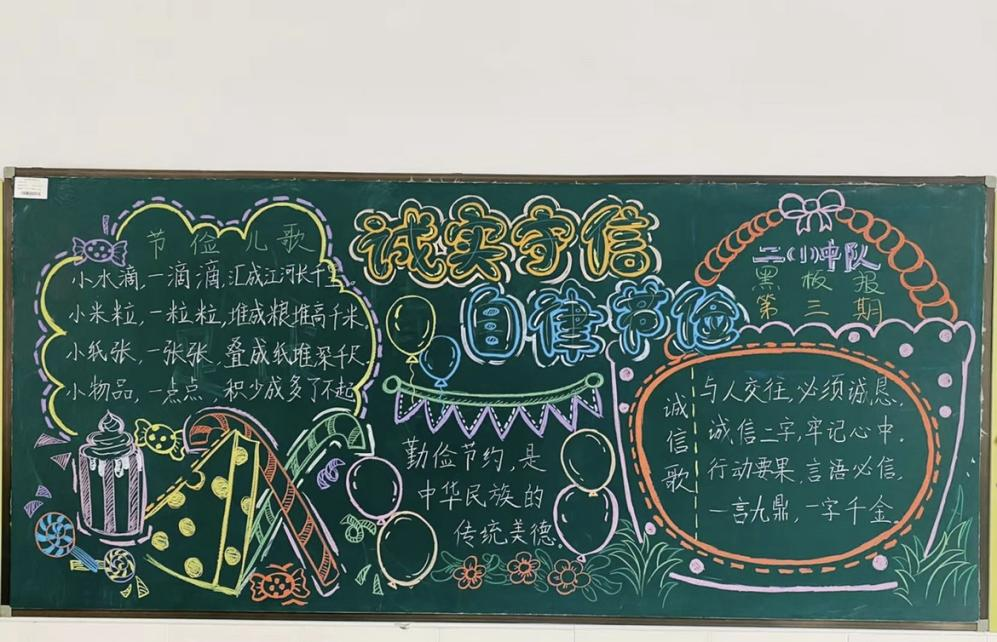 诚实守信
自律节俭
节俭儿歌
小水滴,一滴滴,汇成江河长千里,
小米粒,一粒粒,堆成粮堆高千米,
小纸张,一张张,叠成纸堆深千尺,
小物品,一点点,积少成多了不起。
勤俭节约,是
中华民族的
传统美德。
二(1)中队
黑板报
第三期
诚信歌
与人交往,必须诚恳,
诚信二字,牢记心中。
行动要果,言语必信,
一言九鼎,一字千金。